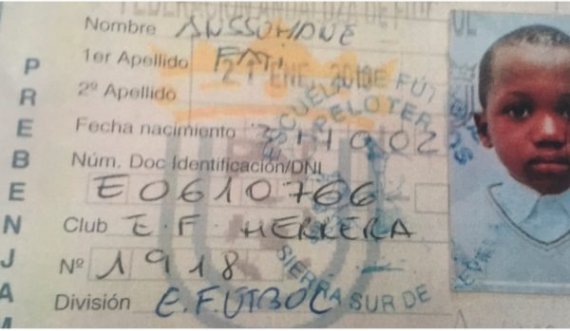 Nombre ANSSUMANE
1er Apellido FATI
21 ENE 2010
2º Apellido
Fecha nacimiento 31 10 02
Núm. Doc Identificación/DNI
E0610766
Club E.F. HERRERA
Nº 1918
División E.FUTBOL
PREBENJAM
ESCUELA DE FÚT
PELOTEROS
SIERRA SUR DE